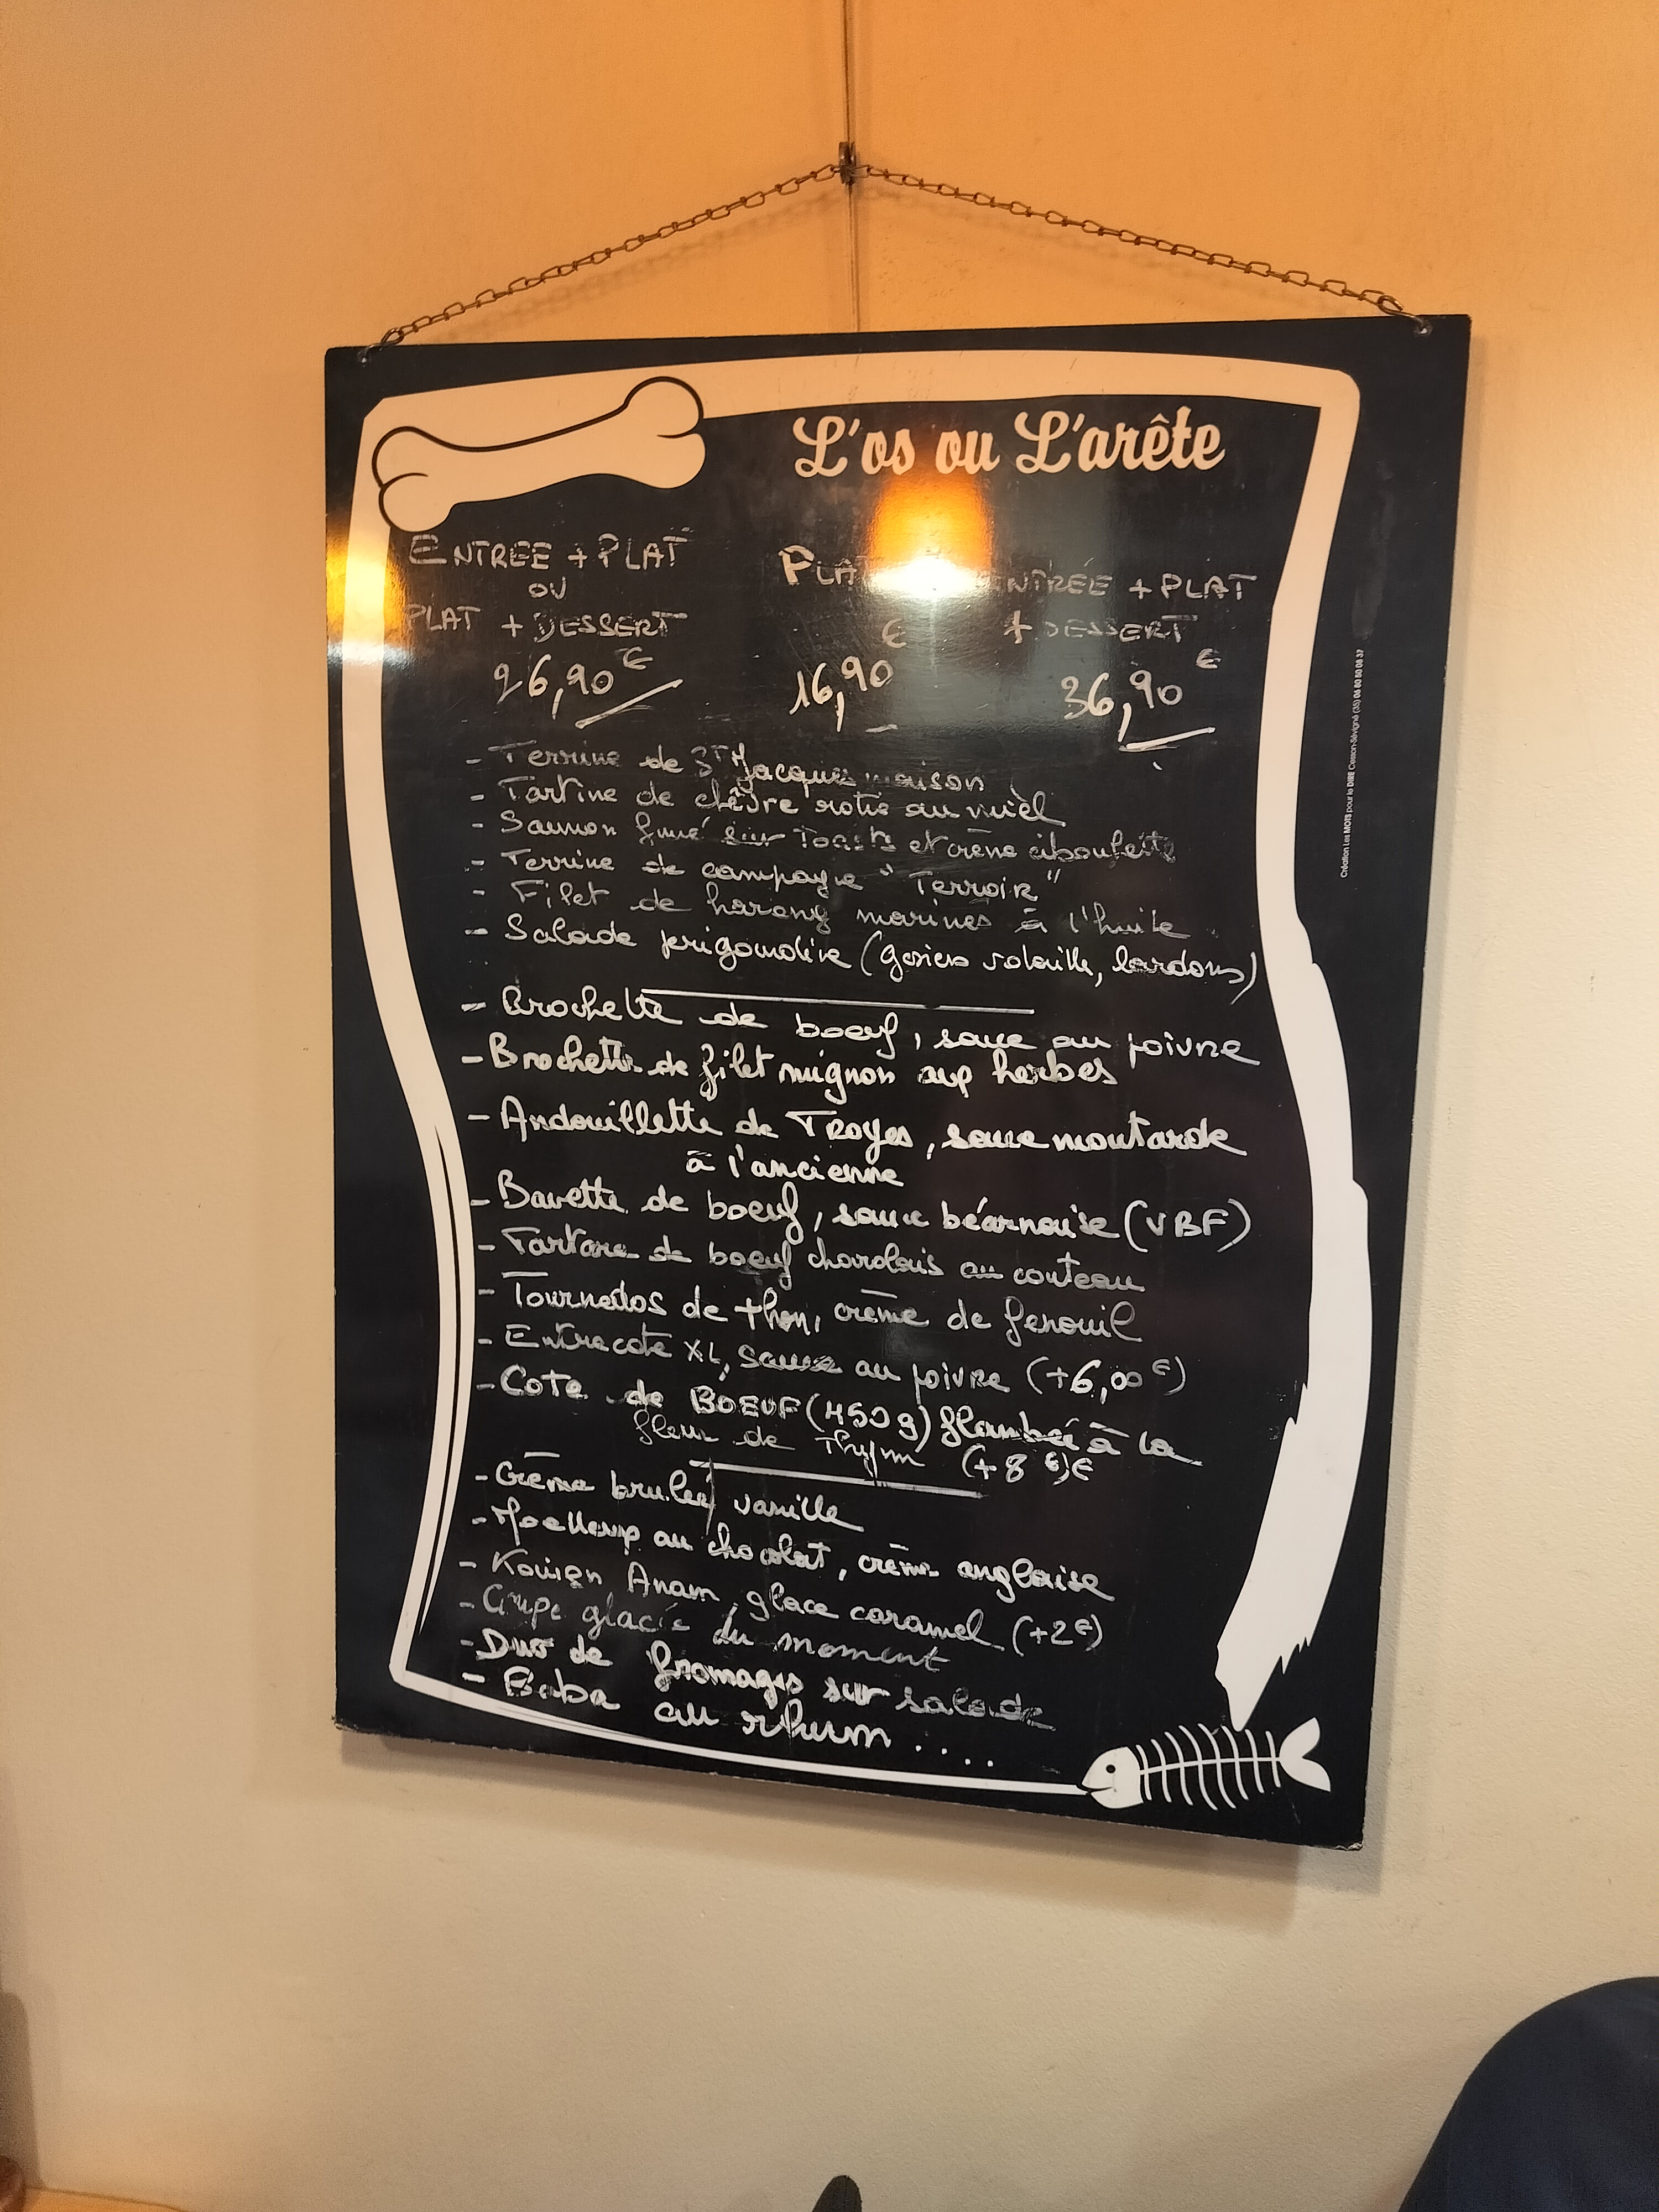 L'os ou L'arête
ENTREE + PLAT
OU
PLAT + DESSERT
26,90 €
PLAT
16,90 €
ENTRÉE + PLAT
+ DESSERT
36,90 €
- Terrine de St Jacques maison
- Tartine de chèvre rotie au miel
- Saumon fumé sur Toasts et crème ciboulette
- Terrine de campagne "Terroir"
- Filet de hareng marinés à l'huile
- Salade perigourdine (gesiers volaille, lardons)
- Brochette de boeuf, sauce au poivre
- Brochette de filet mignon aux herbes
- Andouillette de Troyes, sauce moutarde
à l'ancienne
- Bavette de boeuf, sauce béarnaise (VBF)
- Tartare de boeuf charolais au couteau
- Tournedos de thon, crème de fenouil
- Entrecote XL, sauce au poivre (+6,00 €)
- Cote de BOEUF (450g) flambée à la
fleur de Thym (+8 €)€
- Crème brulée vanille
- Moelleux au chocolat, crème anglaise
- Kouign Anam, glace caramel (+2€)
- Coupe glacée du moment
- Duo de fromages sur salade
- Baba au rhum ....
Création Les MOTS pour le DIRE Cesson-Sévigné (35) 06 80 80 08 37